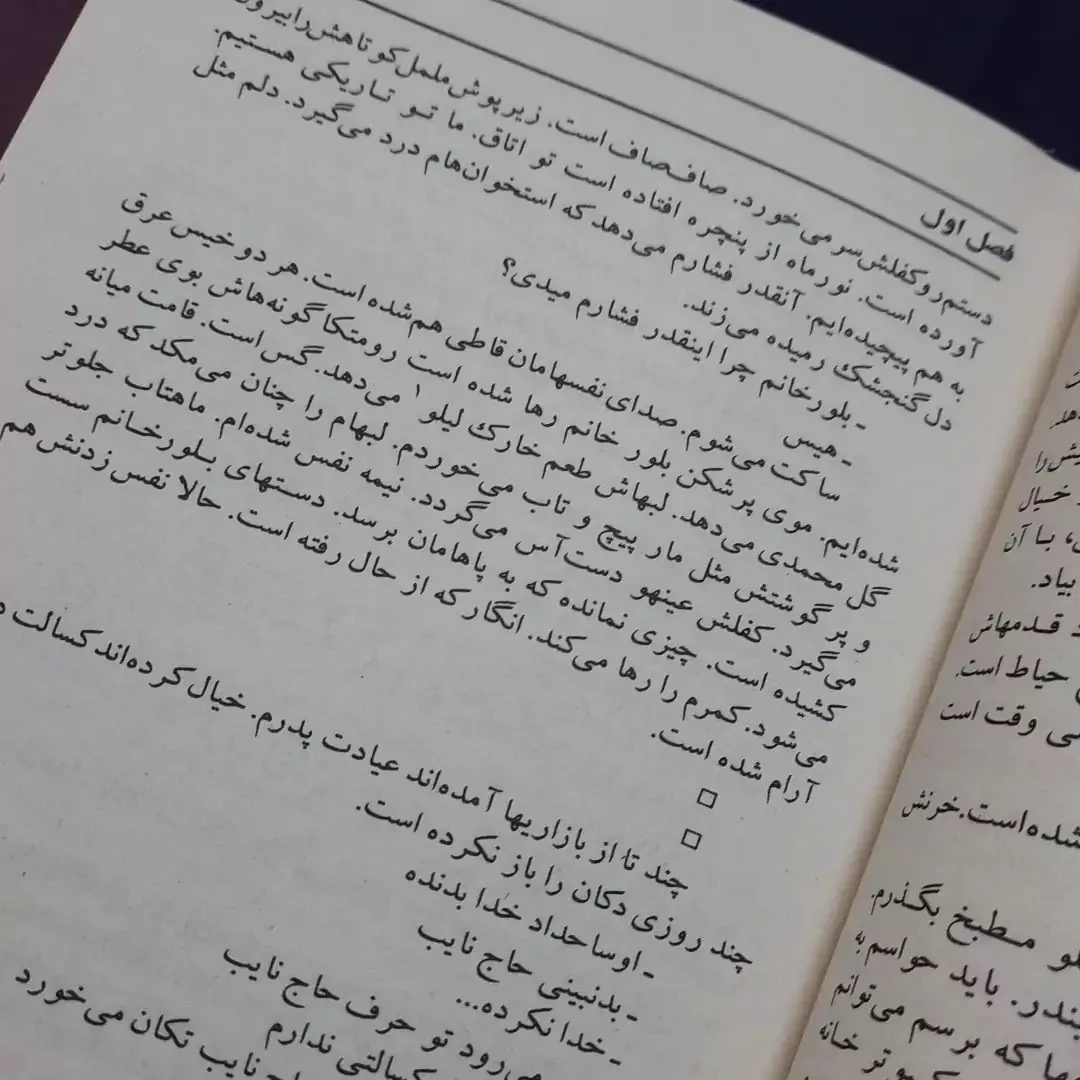 فصل اول
دستم رو کفلش سر می‌خورد. صاف‌صاف است. زیرپوش ململ کوتاهش را بیرون
آورده است. نور ماه از پنجره افتاده است تو اتاق. ما تو تاریکی هستیم.
به هم پیچیده‌ایم. آنقدر فشارم می‌دهد که استخوان‌هام درد می‌گیرد. دلم مثل
دل گنجشک رمیده می‌زند.
- بلور خانم چرا اینقدر فشارم میدی؟
- هیس
ساکت می‌شوم. صدای نفسهامان قاطی هم شده است. هر دو خیس عرق
شده‌ایم. موی پرشکن بلور خانم رها شده است رو متکا گونه‌هاش بوی عطر
گل محمدی می‌دهد. لبهاش طعم خارک لیلو۱ می‌دهد. گس است. قامت میانه
و پر گوشتش مثل مار پیچ و تاب می‌خورد. لبهام را چنان می‌مکد که درد
می‌گیرد. کفلش عینهو دست‌آس می‌گردد. نیمه نفس شده‌ام. ماهتاب جلوتر
کشیده است. چیزی نمانده که به پاهامان برسد. دستهای بلورخانم سست
می‌شود. کمرم را رها می‌کند. انگار که از حال رفته است. حالا نفس زدنش هم
آرام شده است.
□
□
چند تا از بازاریها آمده‌اند عیادت پدرم. خیال کرده‌اند کسالت
چند روزی دکان را باز نکرده است.
- اوساحداد خدا بدنده
- بدنبینی حاج نایب
- خدا نکرده...
می‌رود تو حرف حاج نایب
کسالتی ندارم
نایب تکان می‌خورد
خیال
با آن
بیاد.
قدمهاش
حیاط است.
وقت است
شده است. خرنش
مطبخ بگذرم.
باید حواسم به
که برسم می‌توانم
خانه